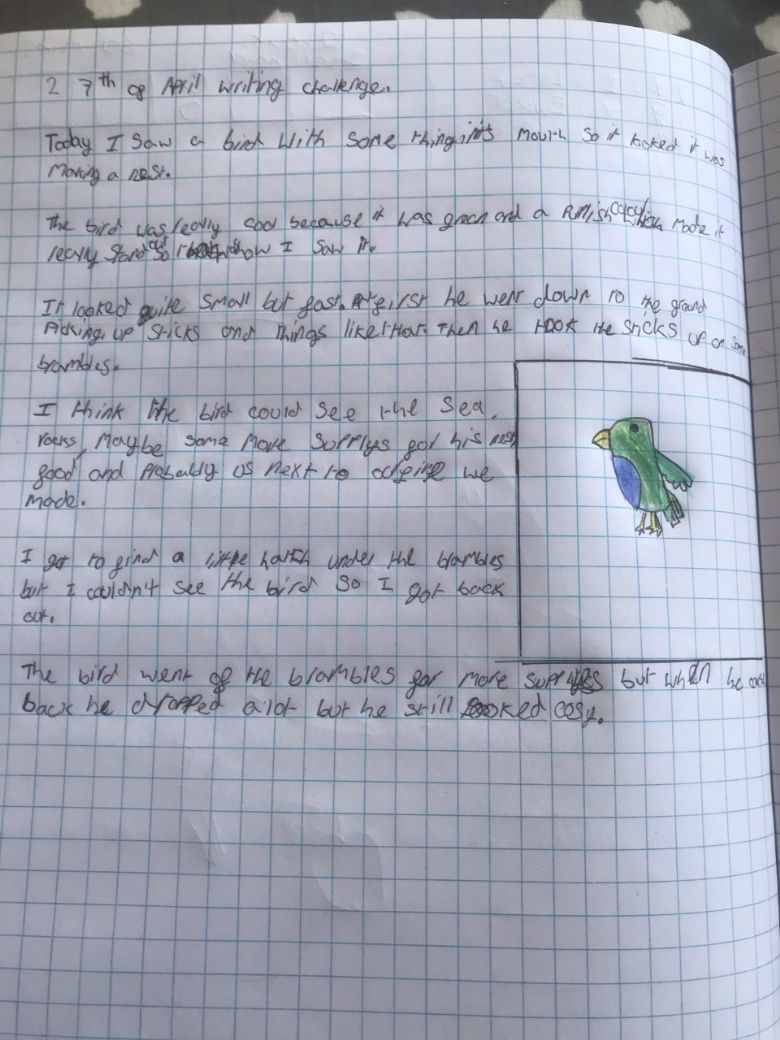 27th of April writing challenge.
Today I saw a bird with some thing in it's mouth so it looked it was
moving a nest.
The bird was really cool because it was green and a made it
really so how I saw it.
It looked quite small but fast. At first he went down to the ground
Picking up sticks and things like that. Then he took the sticks up on some
brambles.
I think the bird could see the sea,
rocks, Maybe some more supplys for his nest
good and Probably us next to we
made.
I got to find a little hatch under the brambles
but I couldn't see the bird so I got back
out.
The bird went of the brambles for more supplyes but when he
back he dropped alot but he still looked cosy.